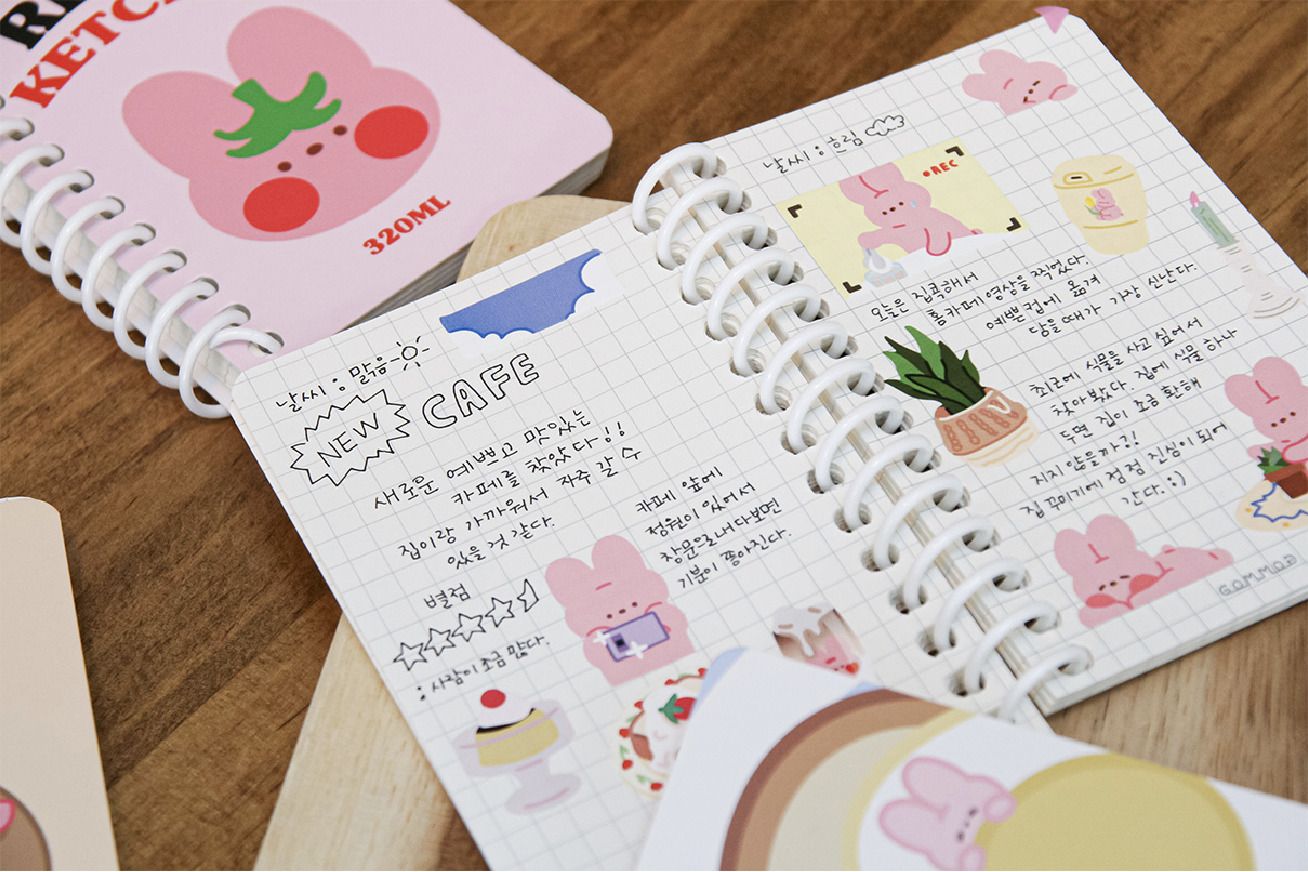 KETC
320ML
날씨 : 맑음
NEW
CAFE
새로운 예쁘고 맛있는
카페를 찾았다!!
집이랑 가까워서 자주 갈 수
있을 것 같다.
별점
: 사람이 조금 많다.
카페 앞에
정원이 있어서
창문을 내다보면
기분이 좋아진다.
날씨 : 흐림
REC
오늘은 집콕해서
홈카페 영상을 찍었다.
예쁜 컵에 옮겨
담을 때가 가장 신난다.
최근에 식물을 사고 싶어서
찾아봤다. 집에 식물 하나
두면 집이 조금 환해
지지 않을까?!
집 꾸미기에 점점 진심이 되어
간다. :)